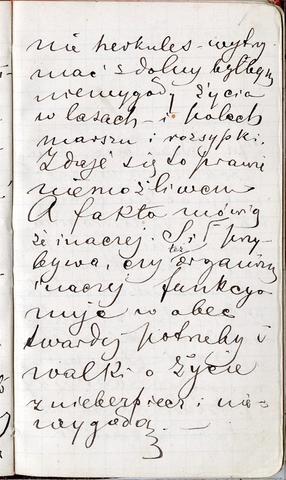 nie herkules - wytrzy
mać zdolny byłbym
niewygód życia
w lasach i polach
marszu i rozsypki.
Zdaje się to prawie
niemożliwem
A fakta mówią
że inaczej. Sił przy
bywa, czy też organizm
inaczej funkcyo
nuje w obec
twardej potrzeby i
walki o życie
z nieberpiecz i nie-
wygodą.